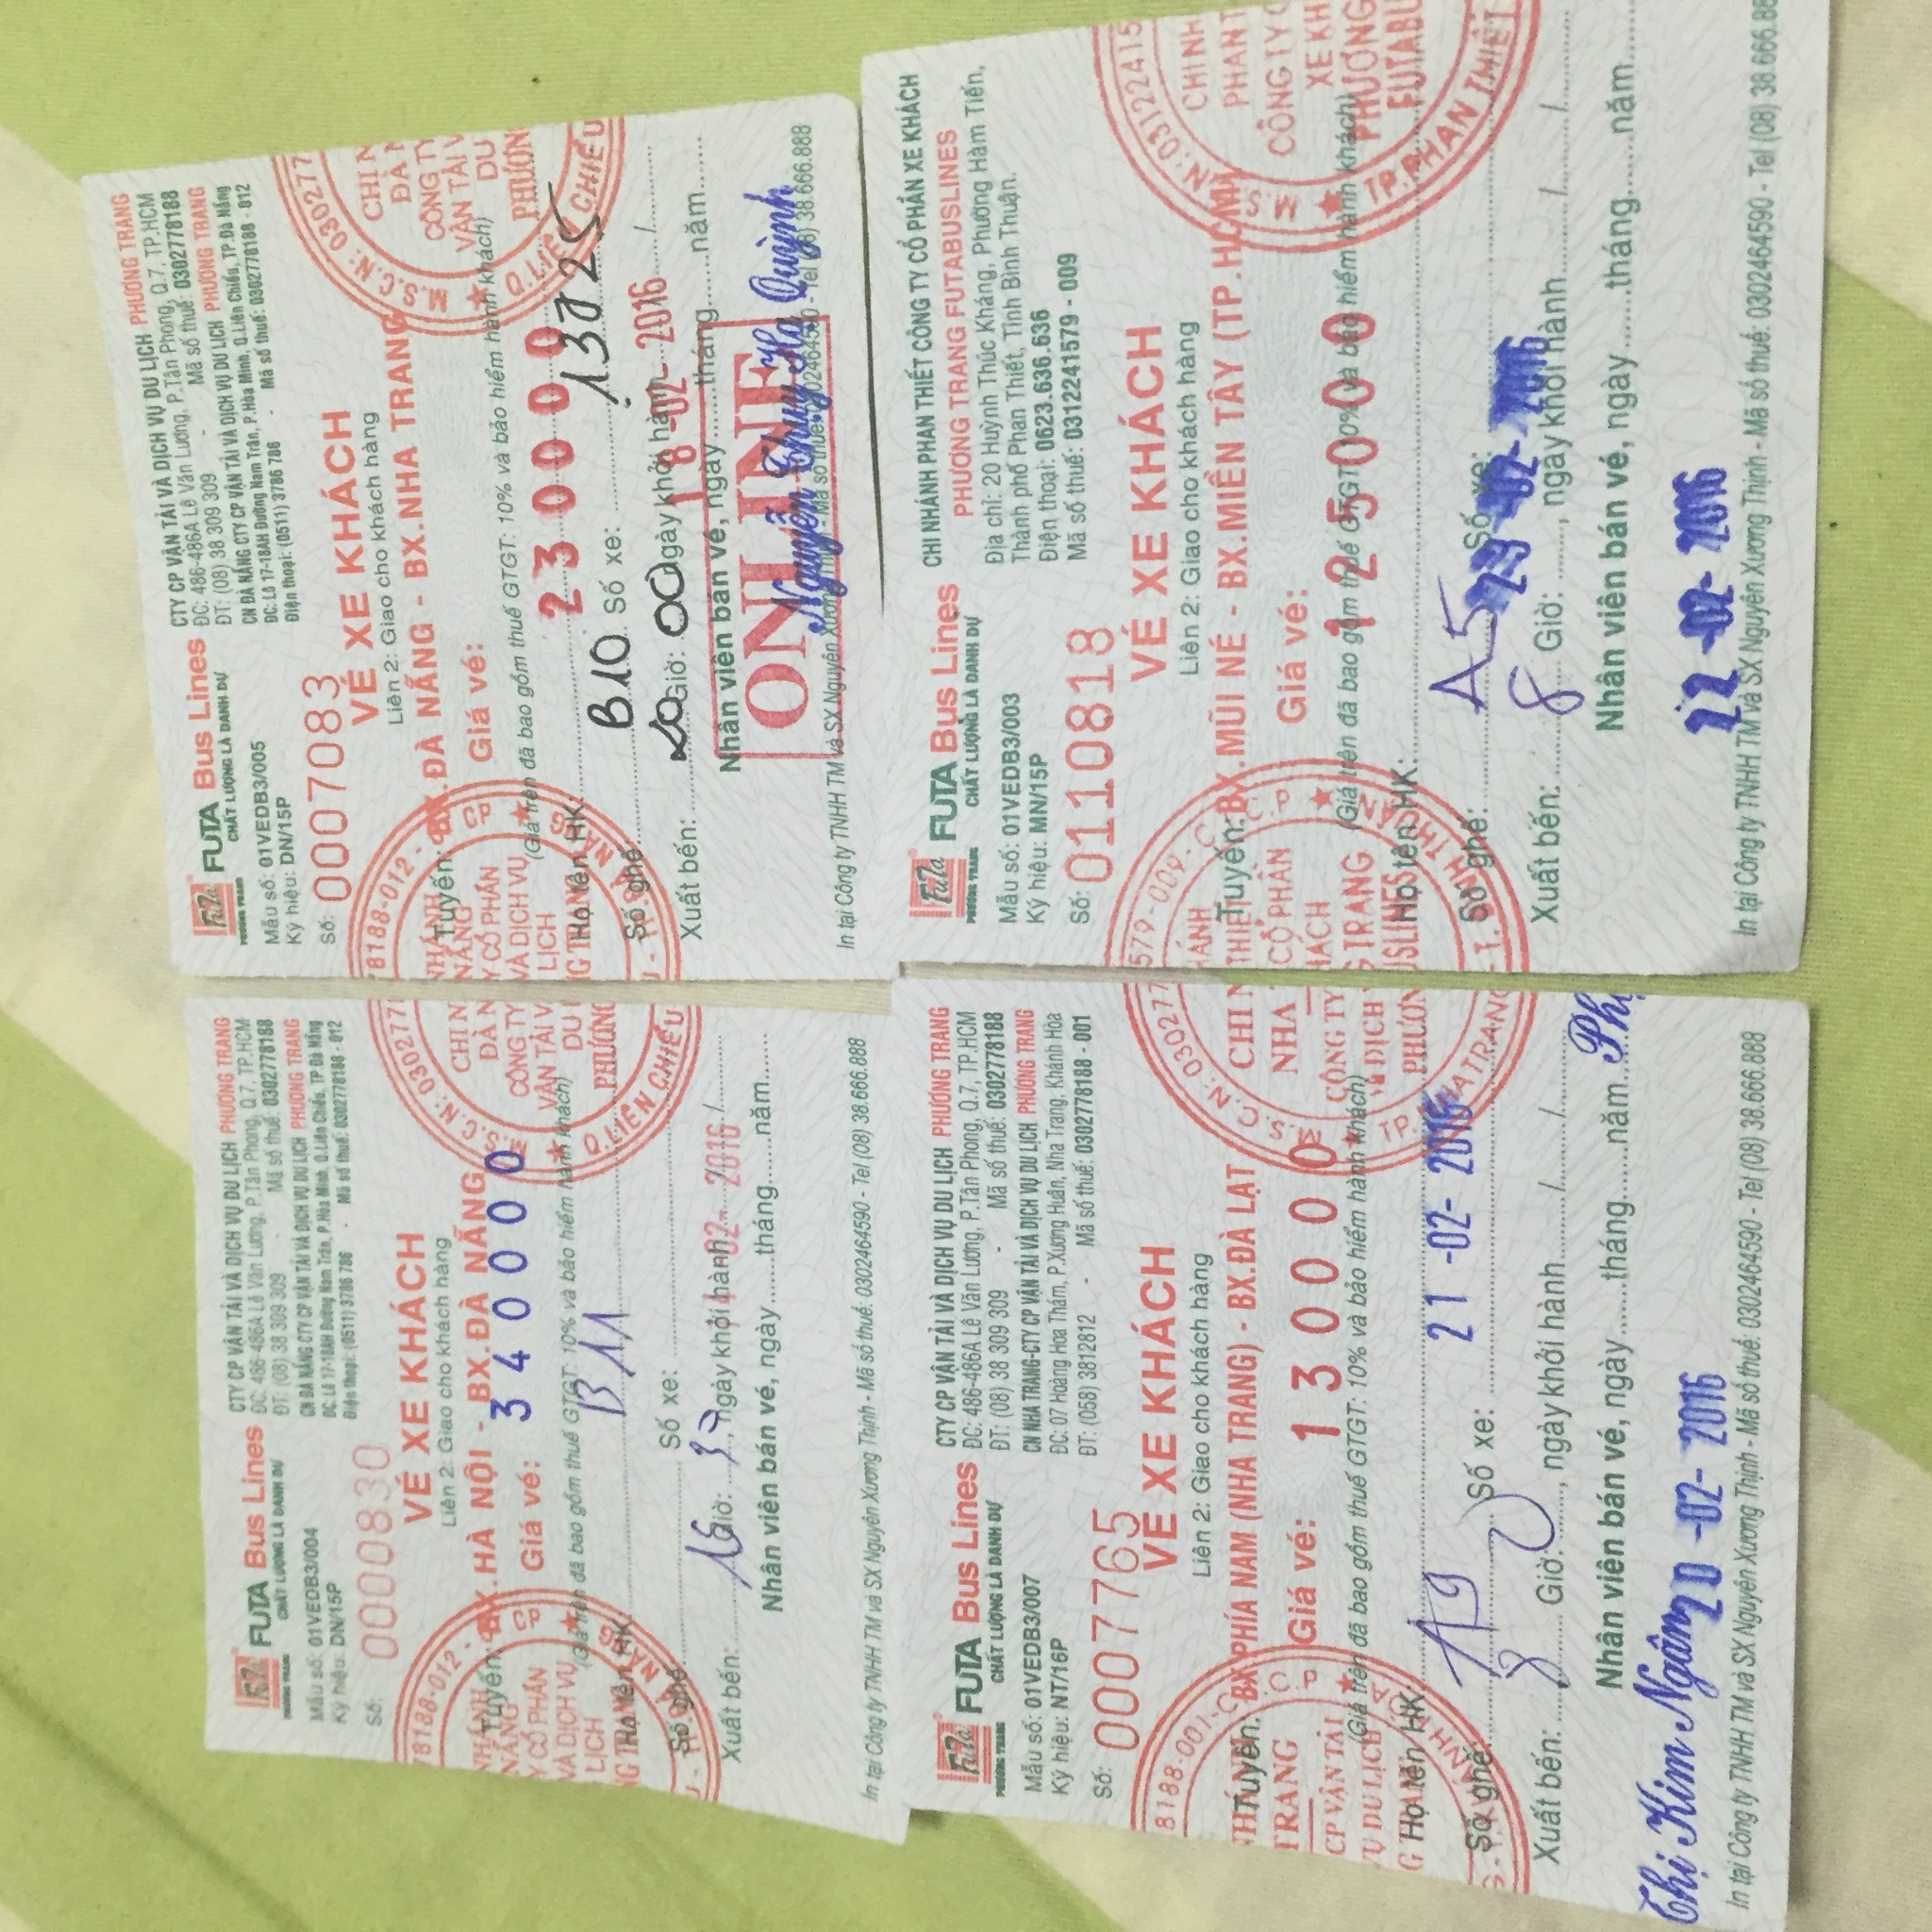 FUTA Bus Lines
CHẤT LƯỢNG LÀ DANH DỰ
PHƯƠNG TRANG
CTY CP VẬN TẢI VÀ DỊCH VỤ DU LỊCH PHƯƠNG TRANG
ĐC: 486-486A Lê Văn Lương, P.Tân Phong, Q.7, TP.HCM
ĐT: (08) 38 309 309 - Mã số thuế: 0302778188
CN ĐÀ NẴNG CTY CP VẬN TẢI VÀ DỊCH VỤ DU LỊCH PHƯƠNG TRANG
ĐC: Lô 17-18AH Đường Nam Trân, P.Hòa Minh, Q.Liên Chiểu, TP.Đà Nẵng
Điện thoại: (0511) 3786 786 - Mã số thuế: 0302778188 - 012
Mẫu số: 01VEDB3/004
Ký hiệu: DN/15P
Số: 0000830
VÉ XE KHÁCH
Liên 2: Giao cho khách hàng
Tuyến: BX.HÀ NỘI - BX.ĐÀ NẴNG
Giá vé: 340000
(Giá trên đã bao gồm thuế GTGT: 10% và bảo hiểm hành khách)
Họ tên HK: B11
Số ghế: Số xe:
Xuất bến: 16 Giờ: , ngày khởi hành 02- 2016
Nhân viên bán vé, ngày......tháng......năm......
In tại Công ty TNHH TM và SX Nguyên Xương Thịnh - Mã số thuế: 0302464590 - Tel (08) 38.666.888
FUTA Bus Lines
CHẤT LƯỢNG LÀ DANH DỰ
PHƯƠNG TRANG
CTY CP VẬN TẢI VÀ DỊCH VỤ DU LỊCH PHƯƠNG TRANG
ĐC: 486-486A Lê Văn Lương, P.Tân Phong, Q.7, TP.HCM
ĐT: (08) 38 309 309 - Mã số thuế: 0302778188
CN ĐÀ NẴNG CTY CP VẬN TẢI VÀ DỊCH VỤ DU LỊCH PHƯƠNG TRANG
ĐC: Lô 17-18AH Đường Nam Trân, P.Hòa Minh, Q.Liên Chiểu, TP.Đà Nẵng
Điện thoại: (0511) 3786 786 - Mã số thuế: 0302778188 - 012
Mẫu số: 01VEDB3/005
Ký hiệu: DN/15P
Số: 0007083
VÉ XE KHÁCH
Liên 2: Giao cho khách hàng
Tuyến: BX.ĐÀ NẴNG - BX.NHA TRANG
Giá vé: 230000
(Giá trên đã bao gồm thuế GTGT: 10% và bảo hiểm hành khách)
Họ tên HK:
Số ghế: B10 Số xe:
Xuất bến: 20 Giờ: 00 ngày khởi hành 18 -02- 2016
Nhân viên bán vé, ngày......tháng......năm......
ONLINE
Nguyễn Thụy Hạ Quỳnh
In tại Công ty TNHH TM và SX Nguyên Xương Thịnh - Mã số thuế: 0302464590 - Tel (08) 38.666.888
FUTA Bus Lines
CHẤT LƯỢNG LÀ DANH DỰ
PHƯƠNG TRANG
CTY CP VẬN TẢI VÀ DỊCH VỤ DU LỊCH PHƯƠNG TRANG
ĐC: 486-486A Lê Văn Lương, P.Tân Phong, Q.7, TP.HCM
ĐT: (08) 38 309 309 - Mã số thuế: 0302778188
CN NHA TRANG-CTY CP VẬN TẢI VÀ DỊCH VỤ DU LỊCH PHƯƠNG TRANG
ĐC: 07 Hoàng Hoa Thám, P.Xương Huân, Nha Trang, Khánh Hòa
ĐT: (058) 3812812 - Mã số thuế: 0302778188 - 001
Mẫu số: 01VEDB3/007
Ký hiệu: NT/16P
Số: 0007765
VÉ XE KHÁCH
Liên 2: Giao cho khách hàng
Tuyến: BX PHÍA NAM (NHA TRANG) - BX.ĐÀ LẠT
Giá vé: 130000
(Giá trên đã bao gồm thuế GTGT: 10% và bảo hiểm hành khách)
Họ tên HK:
21 -02- 2016
Số ghế: A9 Số xe:
Xuất bến: 8 Giờ: , ngày khởi hành / /
Nhân viên bán vé, ngày......tháng......năm......
Thị Kim Ngân 20 -02- 2016
In tại Công ty TNHH TM và SX Nguyên Xương Thịnh - Mã số thuế: 0302464590 - Tel (08) 38.666.888
FUTA Bus Lines
CHẤT LƯỢNG LÀ DANH DỰ
PHƯƠNG TRANG
CHI NHÁNH PHAN THIẾT CÔNG TY CỔ PHẦN XE KHÁCH
PHƯƠNG TRANG FUTABUSLINES
Địa chỉ: 20 Huỳnh Thúc Kháng, Phường Hàm Tiến,
Thành phố Phan Thiết, Tỉnh Bình Thuận.
Điện thoại: 0623.636.636
Mã số thuế: 0312241579 - 009
Mẫu số: 01VEDB3/003
Ký hiệu: MN/15P
Số: 0110818
VÉ XE KHÁCH
Liên 2: Giao cho khách hàng
Tuyến: BX.MŨI NÉ - BX.MIỀN TÂY (TP.HCM)
Giá vé: 125000
(Giá trên đã bao gồm thuế GTGT: 10% và bảo hiểm hành khách)
Họ tên HK:
Số ghế: A5 Số xe:
23 -02- 2016
Xuất bến: 8 Giờ: , ngày khởi hành / /
Nhân viên bán vé, ngày......tháng......năm......
22 -02- 2016
In tại Công ty TNHH TM và SX Nguyên Xương Thịnh - Mã số thuế: 0302464590 - Tel (08) 38.666.88